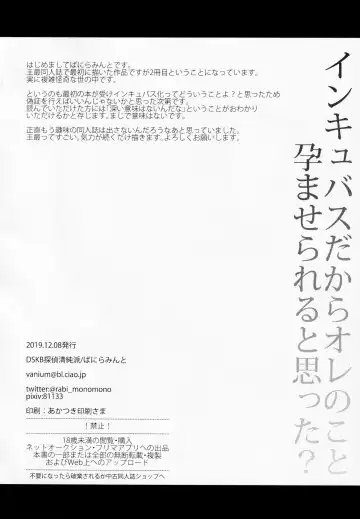 インキュバスだからオレのこと
孕ませられると思った?
はじめましてばにらみんとです。
王最同人誌で最初に描いた作品ですが2冊目ということになっています。
実に複雑怪奇な世の中です。
というのも最初の本が受けインキュバス化ってどういうことよ?と思ったため
偽証を行えばいいんじゃないかと思った次第です。
読んでいただけた方には「深い意味はないんだな」ということがおわかり
いただけるかと存じます。まじで意味はないです。
正直もう趣味の同人誌は出さないんだろうなあと思っていました。
王最ってすごい。気力が続くだけ描きます。よろしくお願いします。
2019.12.08発行
DSKB探偵清純派/ばにらみんと
vanium@bl.ciao.jp
twitter:@rabi_monomono
pixiv:81133
印刷:あかつき印刷さま
!禁止!
18歳未満の閲覧・購入
ネットオークション・フリマアプリへの出品
本書の一部または全部の無断転載・複製
およびWeb上へのアップロード
不要になったら破棄されるか中古同人誌ショップへ